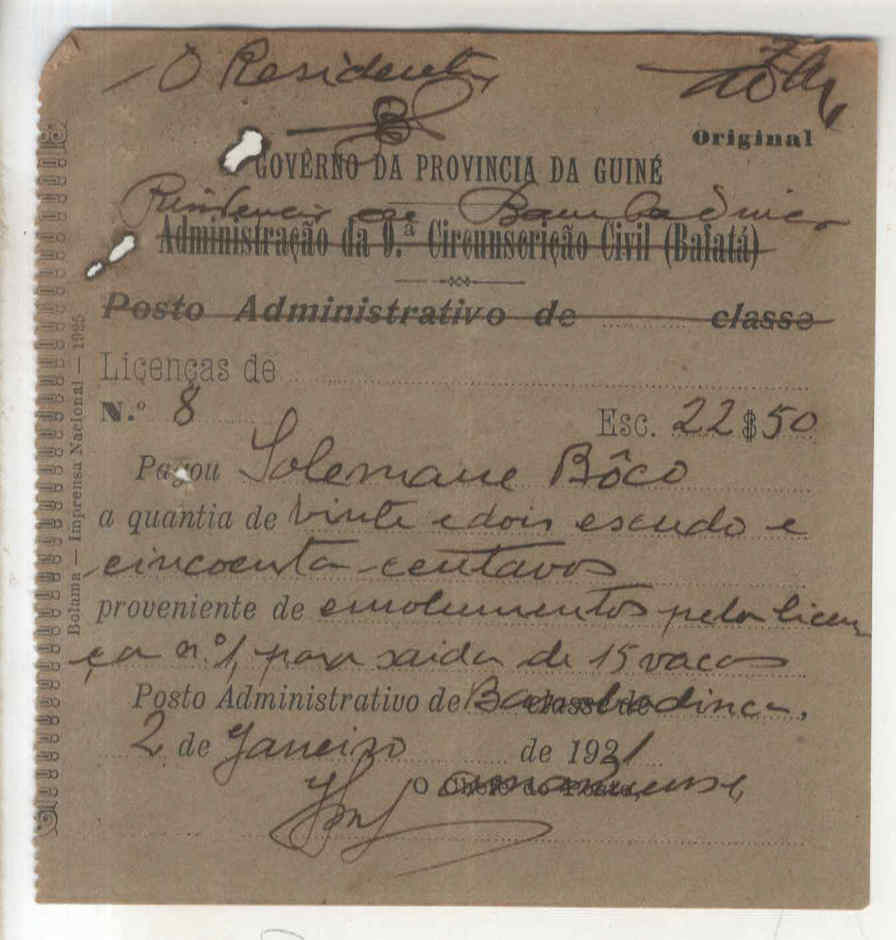 O Residente
Original
GOVÊRNO DA PROVINCIA DA GUINÉ
Residencia de Bambadinca
Administração da 0.ª Circunscrição Civil (Bafatá)
Posto Administrativo de ........ classe
Licenças de
N.º 8 Esc. 22$50
Pagou Solemane Bôco
a quantia de vinte e dois escudo e
cincoenta centavos
proveniente de emolumentos pela licen
ça n.º 1, para saida de 15 vacas
Posto Administrativo de Bambadinca,
classe de
2 de Janeiro de 1931
O Chefe do Posto,
amanuense,
Bolama — Imprensa Nacional — 1925